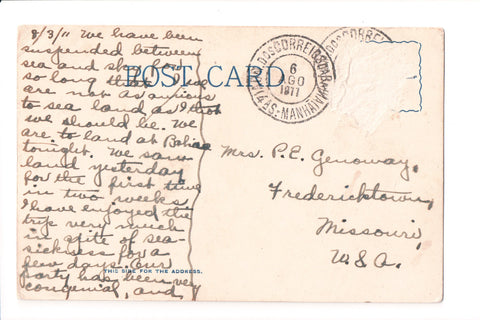 8/3/11 We have been
suspended between
sea and sky for
so long that we
are not as anxious
to see land as
we should be. We
are to land at Bahia
tonight. We saw
land yesterday
for the first time
in two weeks.
I have enjoyed the
trip very much
in spite of sea-
sickness for a
few days. Our
party has been very
congenial, and
POST CARD
THIS SIDE FOR THE ADDRESS.
6
AGO
1911
MANHÃ
Mrs. P. E. Genoway,
Fredericktown,
Missouri,
U.S.A.